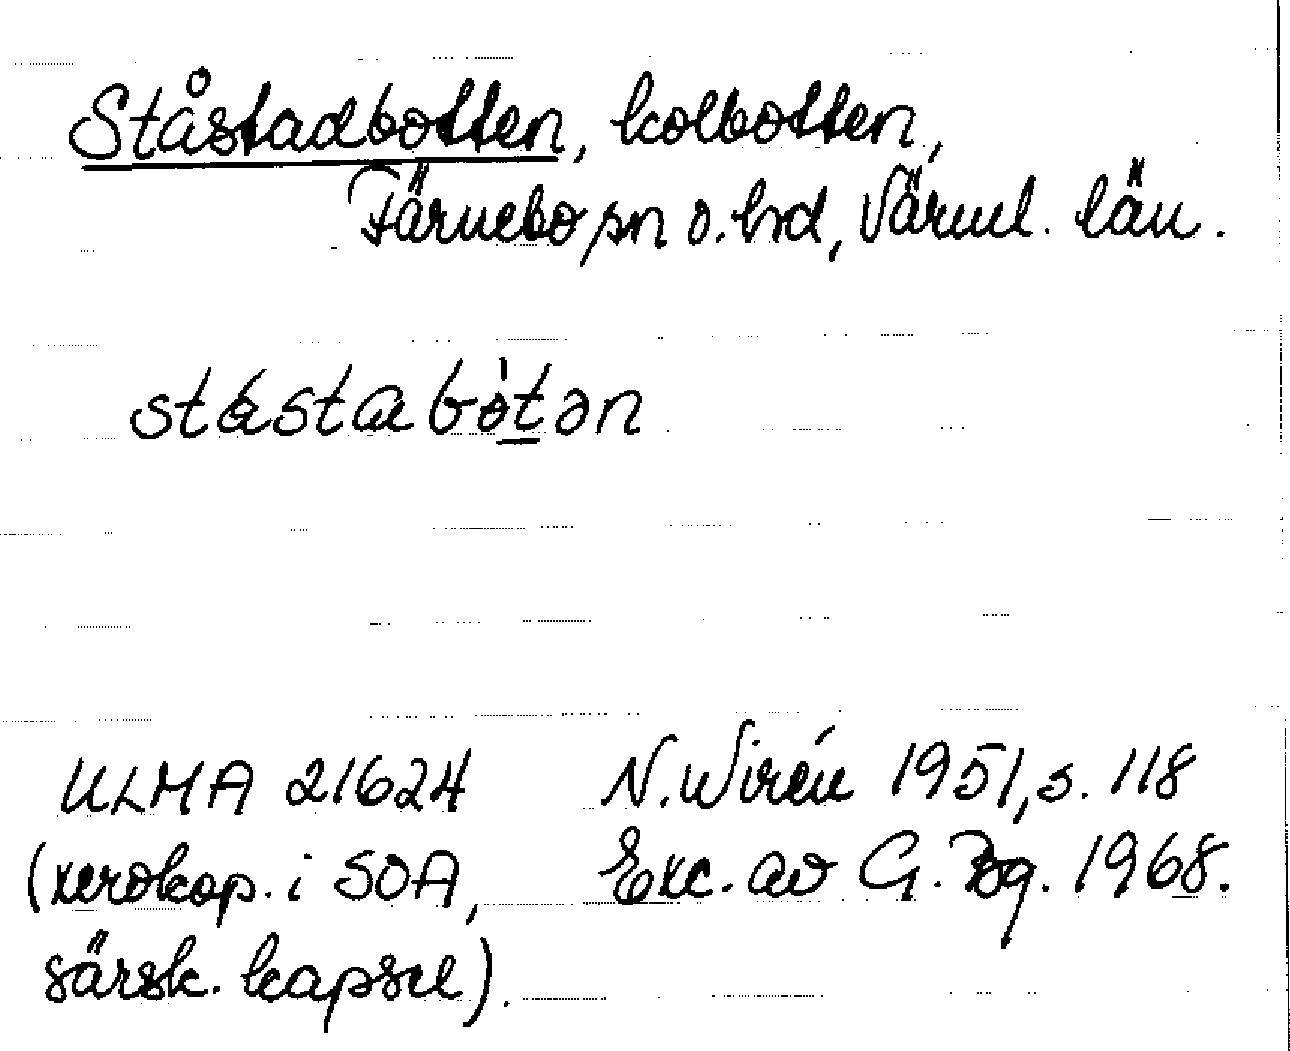 Ståstadbotten, kolbotten,
Färnebo sn o. hd, Värml. län.
ståstabòtən
ULMA 21624 N. Wirén 1951, s. 118
(xerokop. i SOA, Exc. av G. Bg. 1968.
särsk. kapsel).